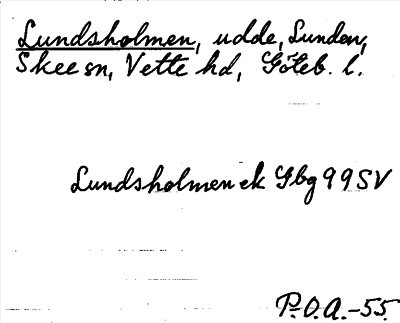 Lundsholmen, udde, Lunden,
Skee sn, Vette hd, Göteb. l.
Lundsholmen ek Gbg 99 SV
P.O.A.-55.